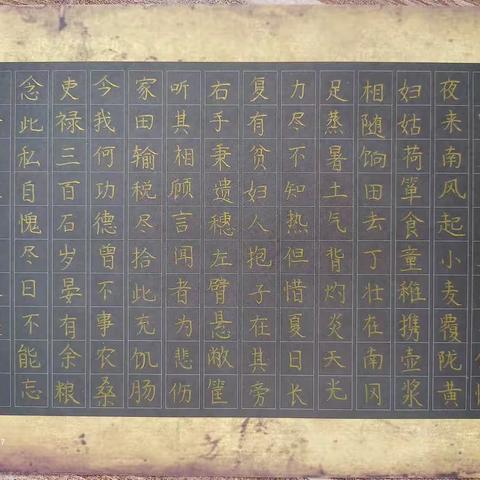 夜来南风起小麦覆陇黄
妇姑荷箪食童稚携壶浆
相随饷田去丁壮在南冈
足蒸暑土气背灼炎天光
力尽不知热但惜夏日长
复有贫妇人抱子在其旁
右手秉遗穗左臂悬敝筐
听其相顾言闻者为悲伤
家田输税尽拾此充饥肠
今我何功德曾不事农桑
吏禄三百石岁晏有余粮
念此私自愧尽日不能忘